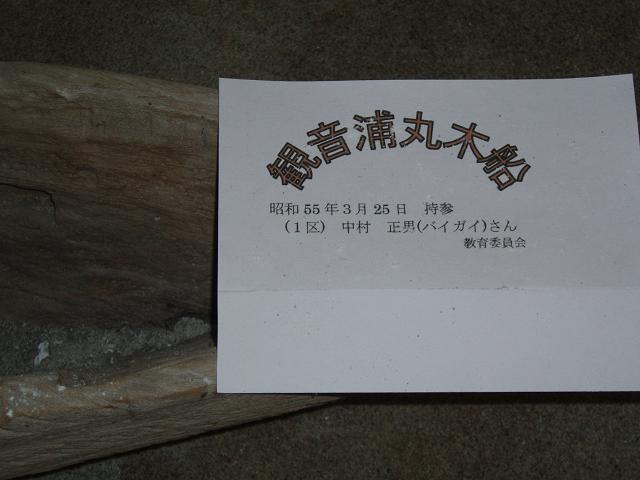 観音浦丸木船
昭和55年3月25日　持参
(1区)　中村　正男(バイガイ)さん
教育委員会